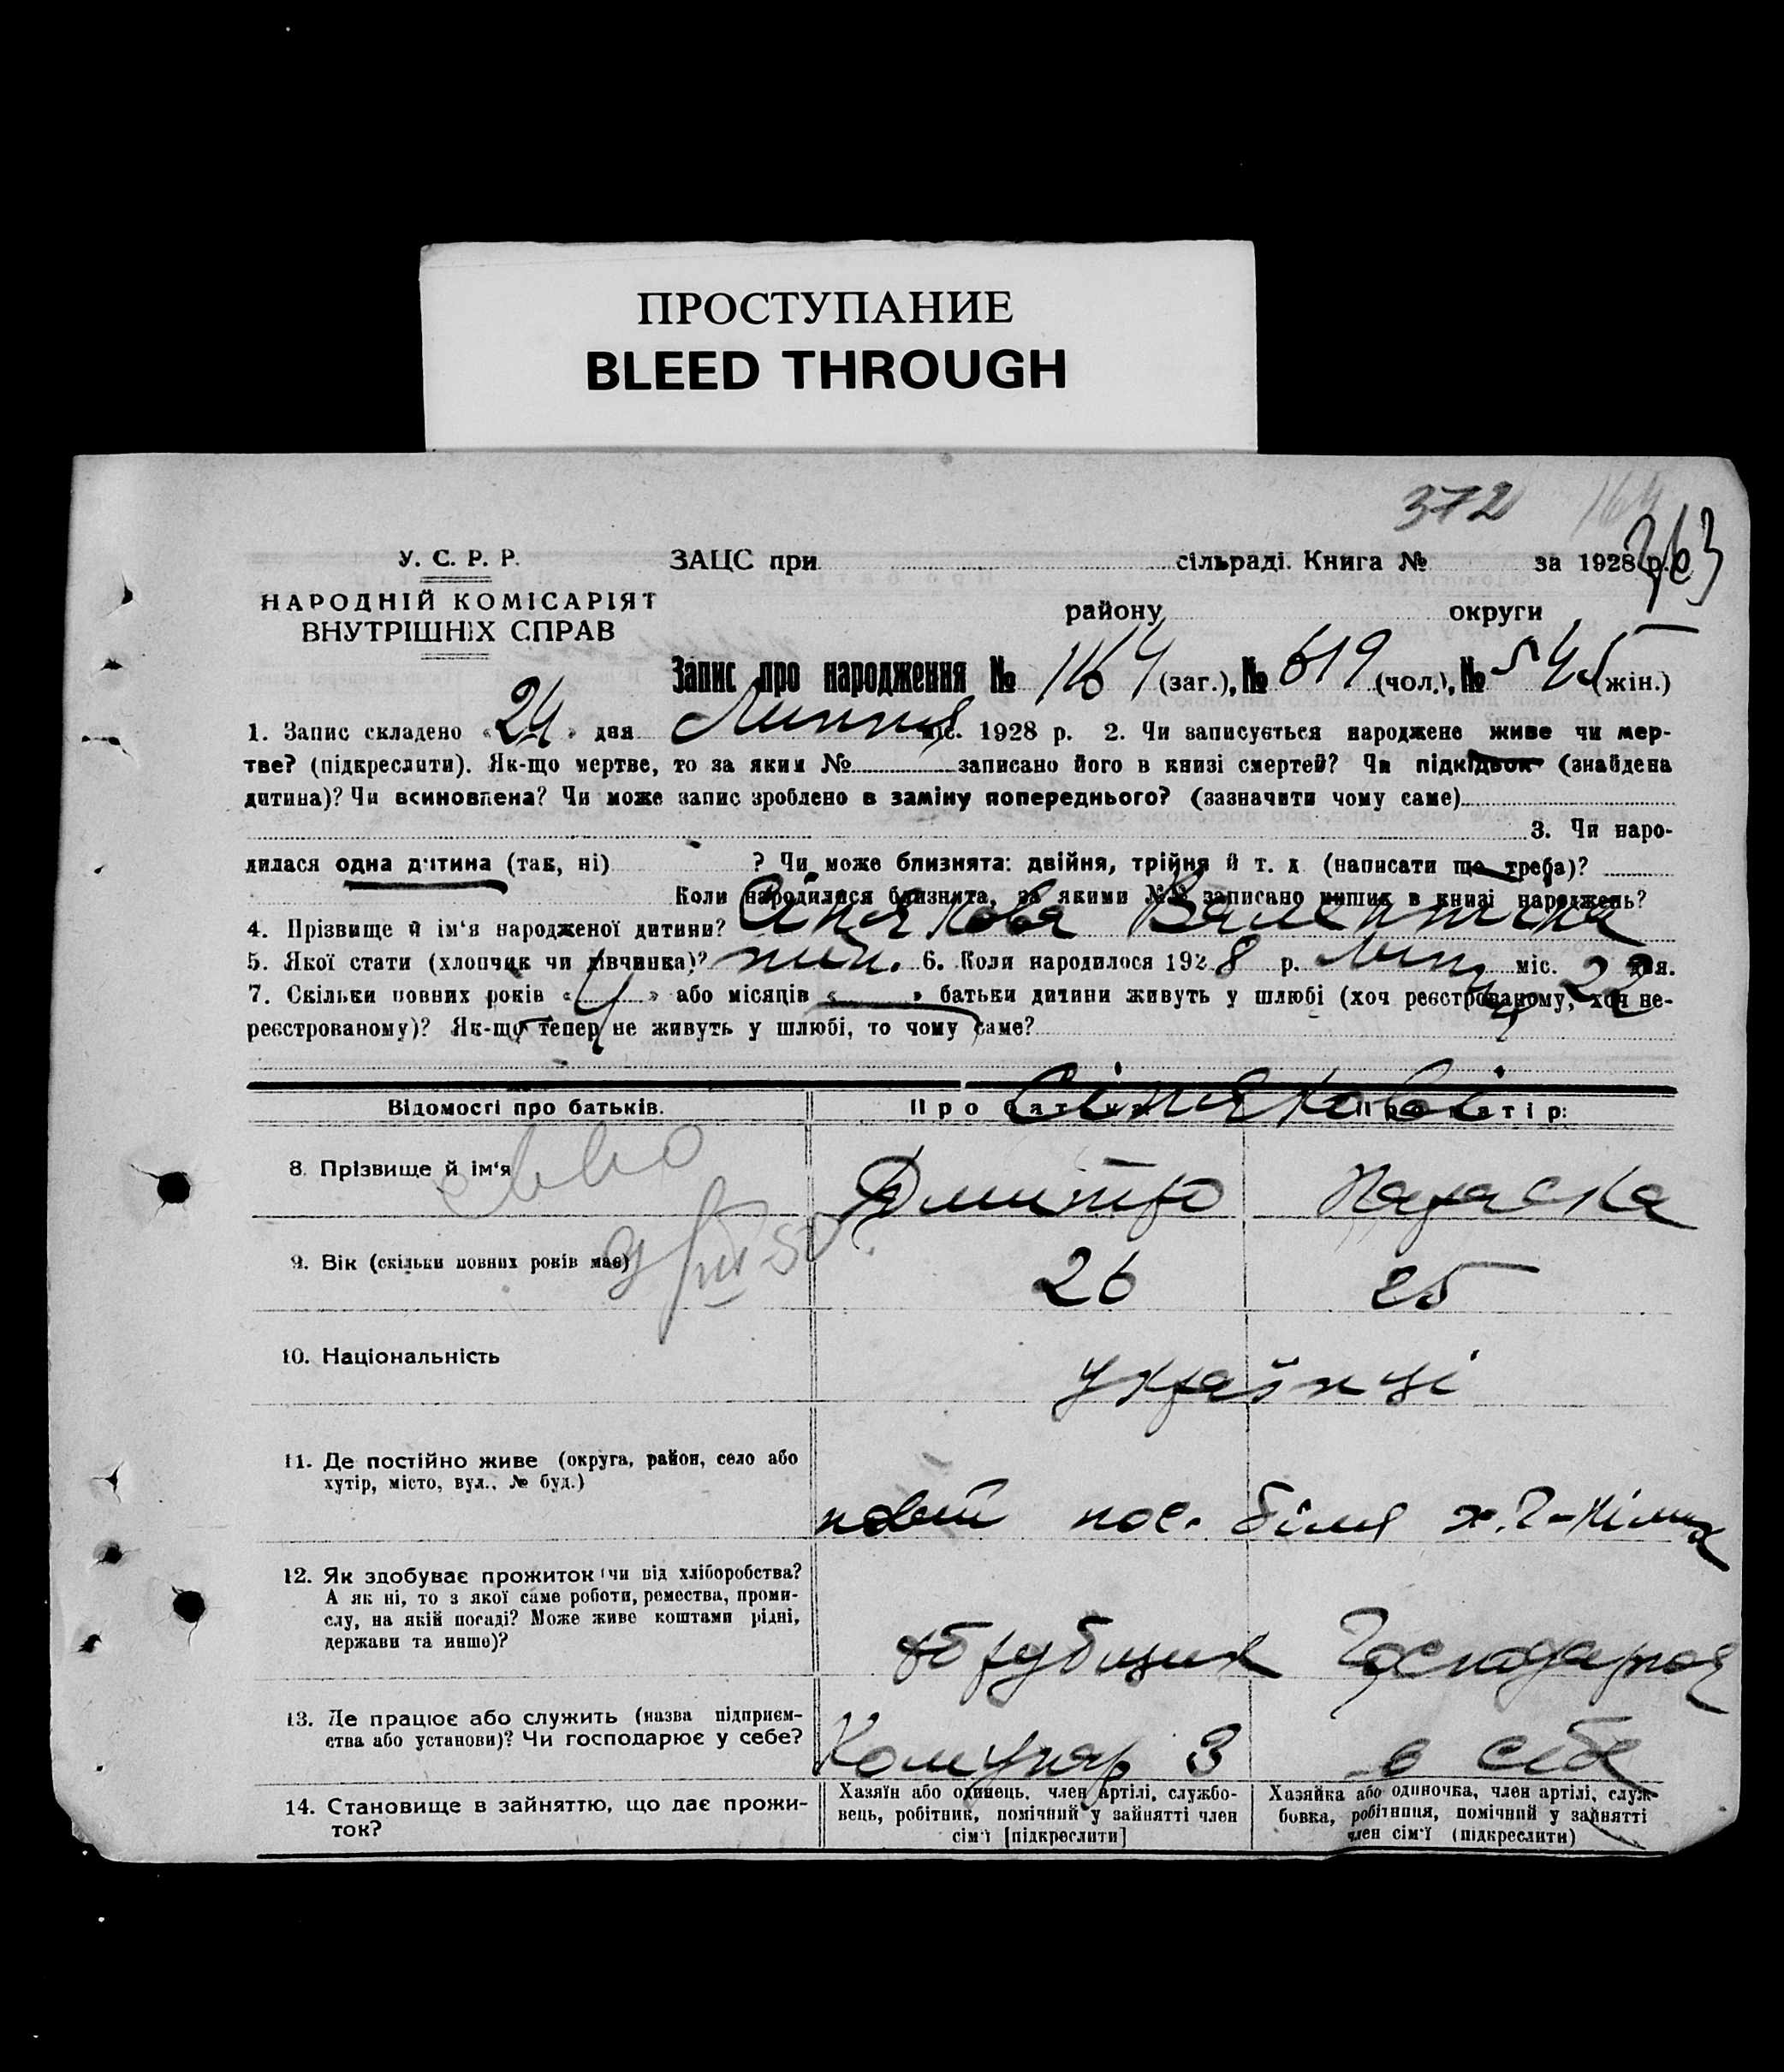 ПРОСТУПАНИЕ
BLEED THROUGH
372 164
363
У. С. Р. Р.
НАРОДНІЙ КОМІСАРІЯТ
ВНУТРІШНІХ СПРАВ
ЗАЦС при сільраді. Книга № за 1928 р.
району округи
Запис про народження № 1164 (заг.), № 619 (чол.), № 545 (жін.)
1. Запис складено «24» дня Липня міс. 1928 р. 2. Чи записується народжене живе чи мер-
тве? (підкреслити). Як-що мертве, то за яким № записано його в книзі смертей? Чи підкідьок (знайдена
дитина)? Чи всиновлена? Чи може запис зроблено в заміну попереднього? (зазначити чому саме)
3. Чи наро-
дилася одна дитина (так, ні) ? Чи може близнята: двійня, трійня й т. д. (написати що треба)?
Коли народилися близнята, за якими №№ записано инших в книзі народжень?
4. Прізвище й ім'я народженої дитини? Сінякова Валентина
5. Якої стати (хлопчик чи дівчинка)? жін. 6. Коли народилося 1928 р. Липн міс. 22 дня.
7. Скільки повних років «4» або місяців « » батьки дитини живуть у шлюбі (хоч реєстрованому, хоч не-
реєстрованому)? Як-що тепер не живуть у шлюбі, то чому саме?
Відомості про батьків. Про батька: Про матір:
Сінякові
8. Прізвище й ім'я Дмитро Параска
9. Вік (скільки повних років має) 26 25
10. Національність українці
11. Де постійно живе (округа, район, село або
хутір, місто, вул., № буд.)
новий пос. біля х.
12. Як здобуває прожиток (чи від хліборобства?
А як ні, то з якої саме роботи, ремества, проми-
слу, на якій посаді? Може живе коштами рідні,
держави та инше)?
обрубщик Господарює
13. Де працює або служить (назва підприєм-
ства або установи)? Чи господарює у себе?
Комунар З в себе
14. Становище в зайняттю, що дає прожи-
ток?
Хазяїн або одинець, член артілі, службо-
вець, робітник, помічний у зайнятті член
сім'ї [підкреслити]
Хазяйка або одиночка, член артілі, служ-
бовка, робітниця, помічний у зайнятті
член сім'ї (підкреслити)